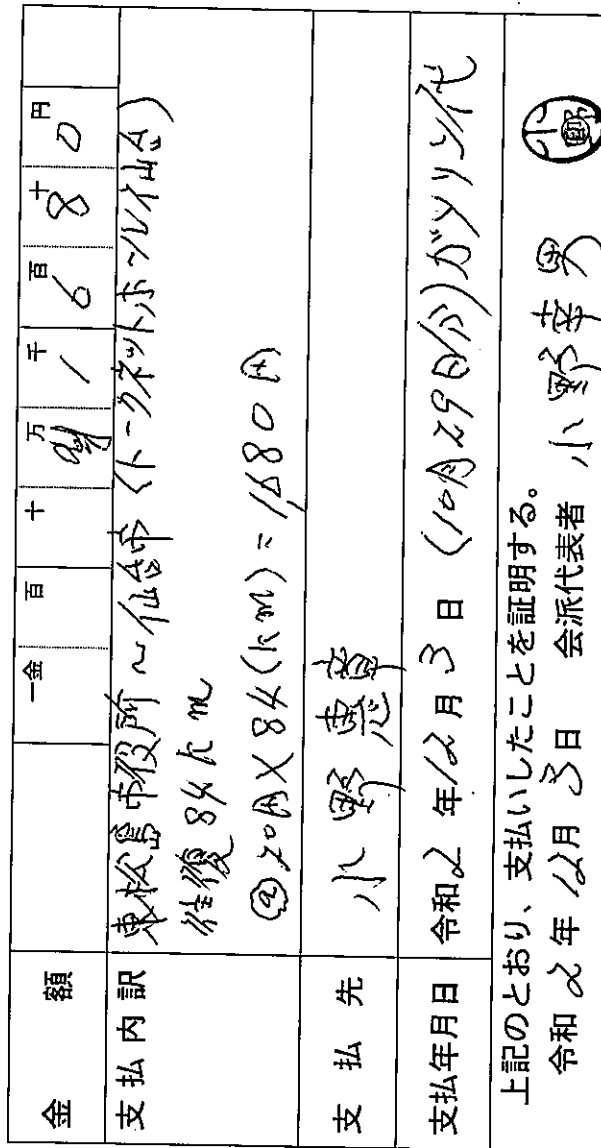 金額 一金 百 十 万 千 百 十 円
1 6 8 0
支払内訳 東松島市役所～仙台市(トークネットホール仙台)
往復84km
@20円×84(km)=1,680円
支払先 小野惠章
支払年月日 令和2年12月3日 (10月29日分)ガソリン代
上記のとおり、支払いしたことを証明する。
令和2年12月3日 会派代表者 小野幸男